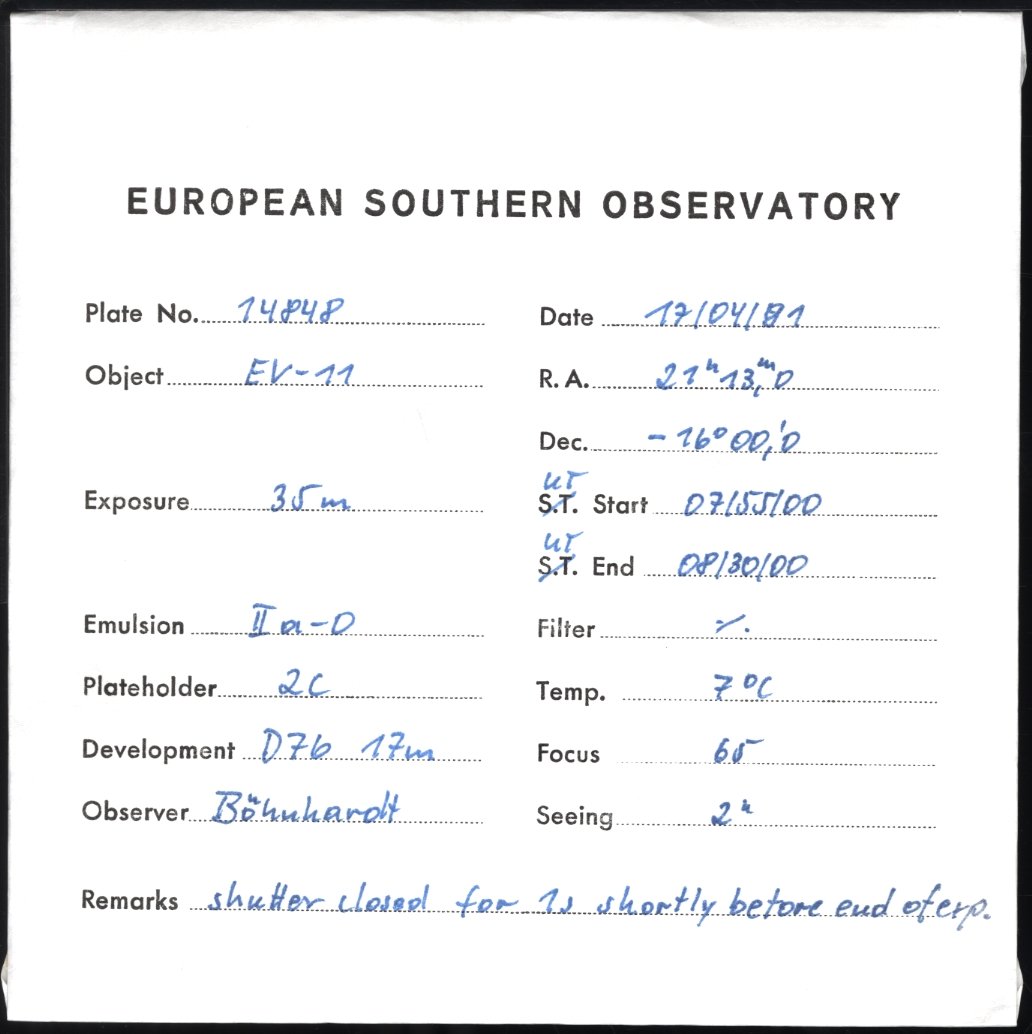 EUROPEAN SOUTHERN OBSERVATORY
Plate No. 14848 Date 17/04/91
Object EV-11 R. A. 21h 13,m0
Dec. -16° 00,'0
UT
Exposure 35m S.T. Start 07/55/00
UT
S.T. End 08/30/00
Emulsion IIa-O Filter ·/.
Plateholder 2C Temp. 7°C
Development D76 17m Focus 65
Observer Böhnhardt Seeing 2"
Remarks shutter closed for 1s shortly before end of exp.